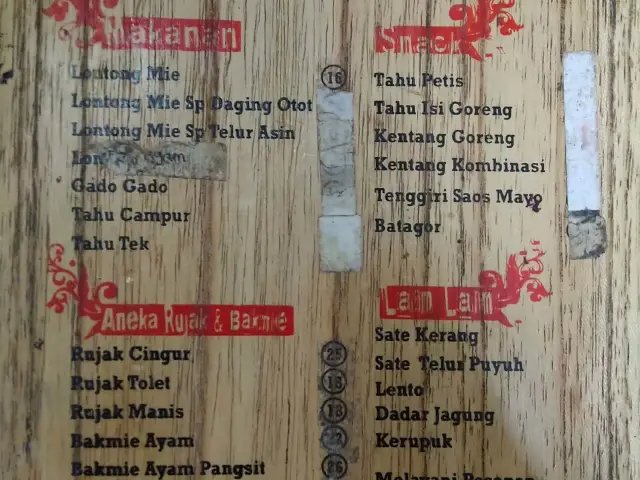 Makanan
Lontong Mie 16
Lontong Mie Sp Daging Otot
Lontong Mie Sp Telur Asin
Gado Gado
Tahu Campur
Tahu Tek
Aneka Rujak & Bakmie
Rujak Cingur 25
Rujak Tolet 18
Rujak Manis 18
Bakmie Ayam
Bakmie Ayam Pangsit 26
Snack
Tahu Petis
Tahu Isi Goreng
Kentang Goreng
Kentang Kombinasi
Tenggiri Saos Mayo
Batagor
Lain Lain
Sate Kerang
Sate Telur Puyuh
Lento
Dadar Jagung
Kerupuk
Melayani Pesanan